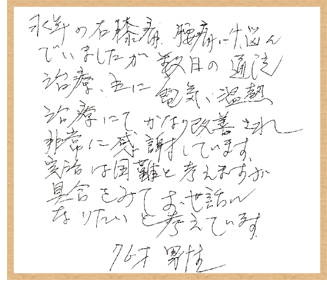 永年の右膝痛、腰痛に悩ん
でいましたが 数日の通院
治療、主に電気、温熱
治療にてかなり改善され
非常に感謝しています。
完治は困難と考えますが
具合をみてお世話に
なりたいと考えています。
76才 男性